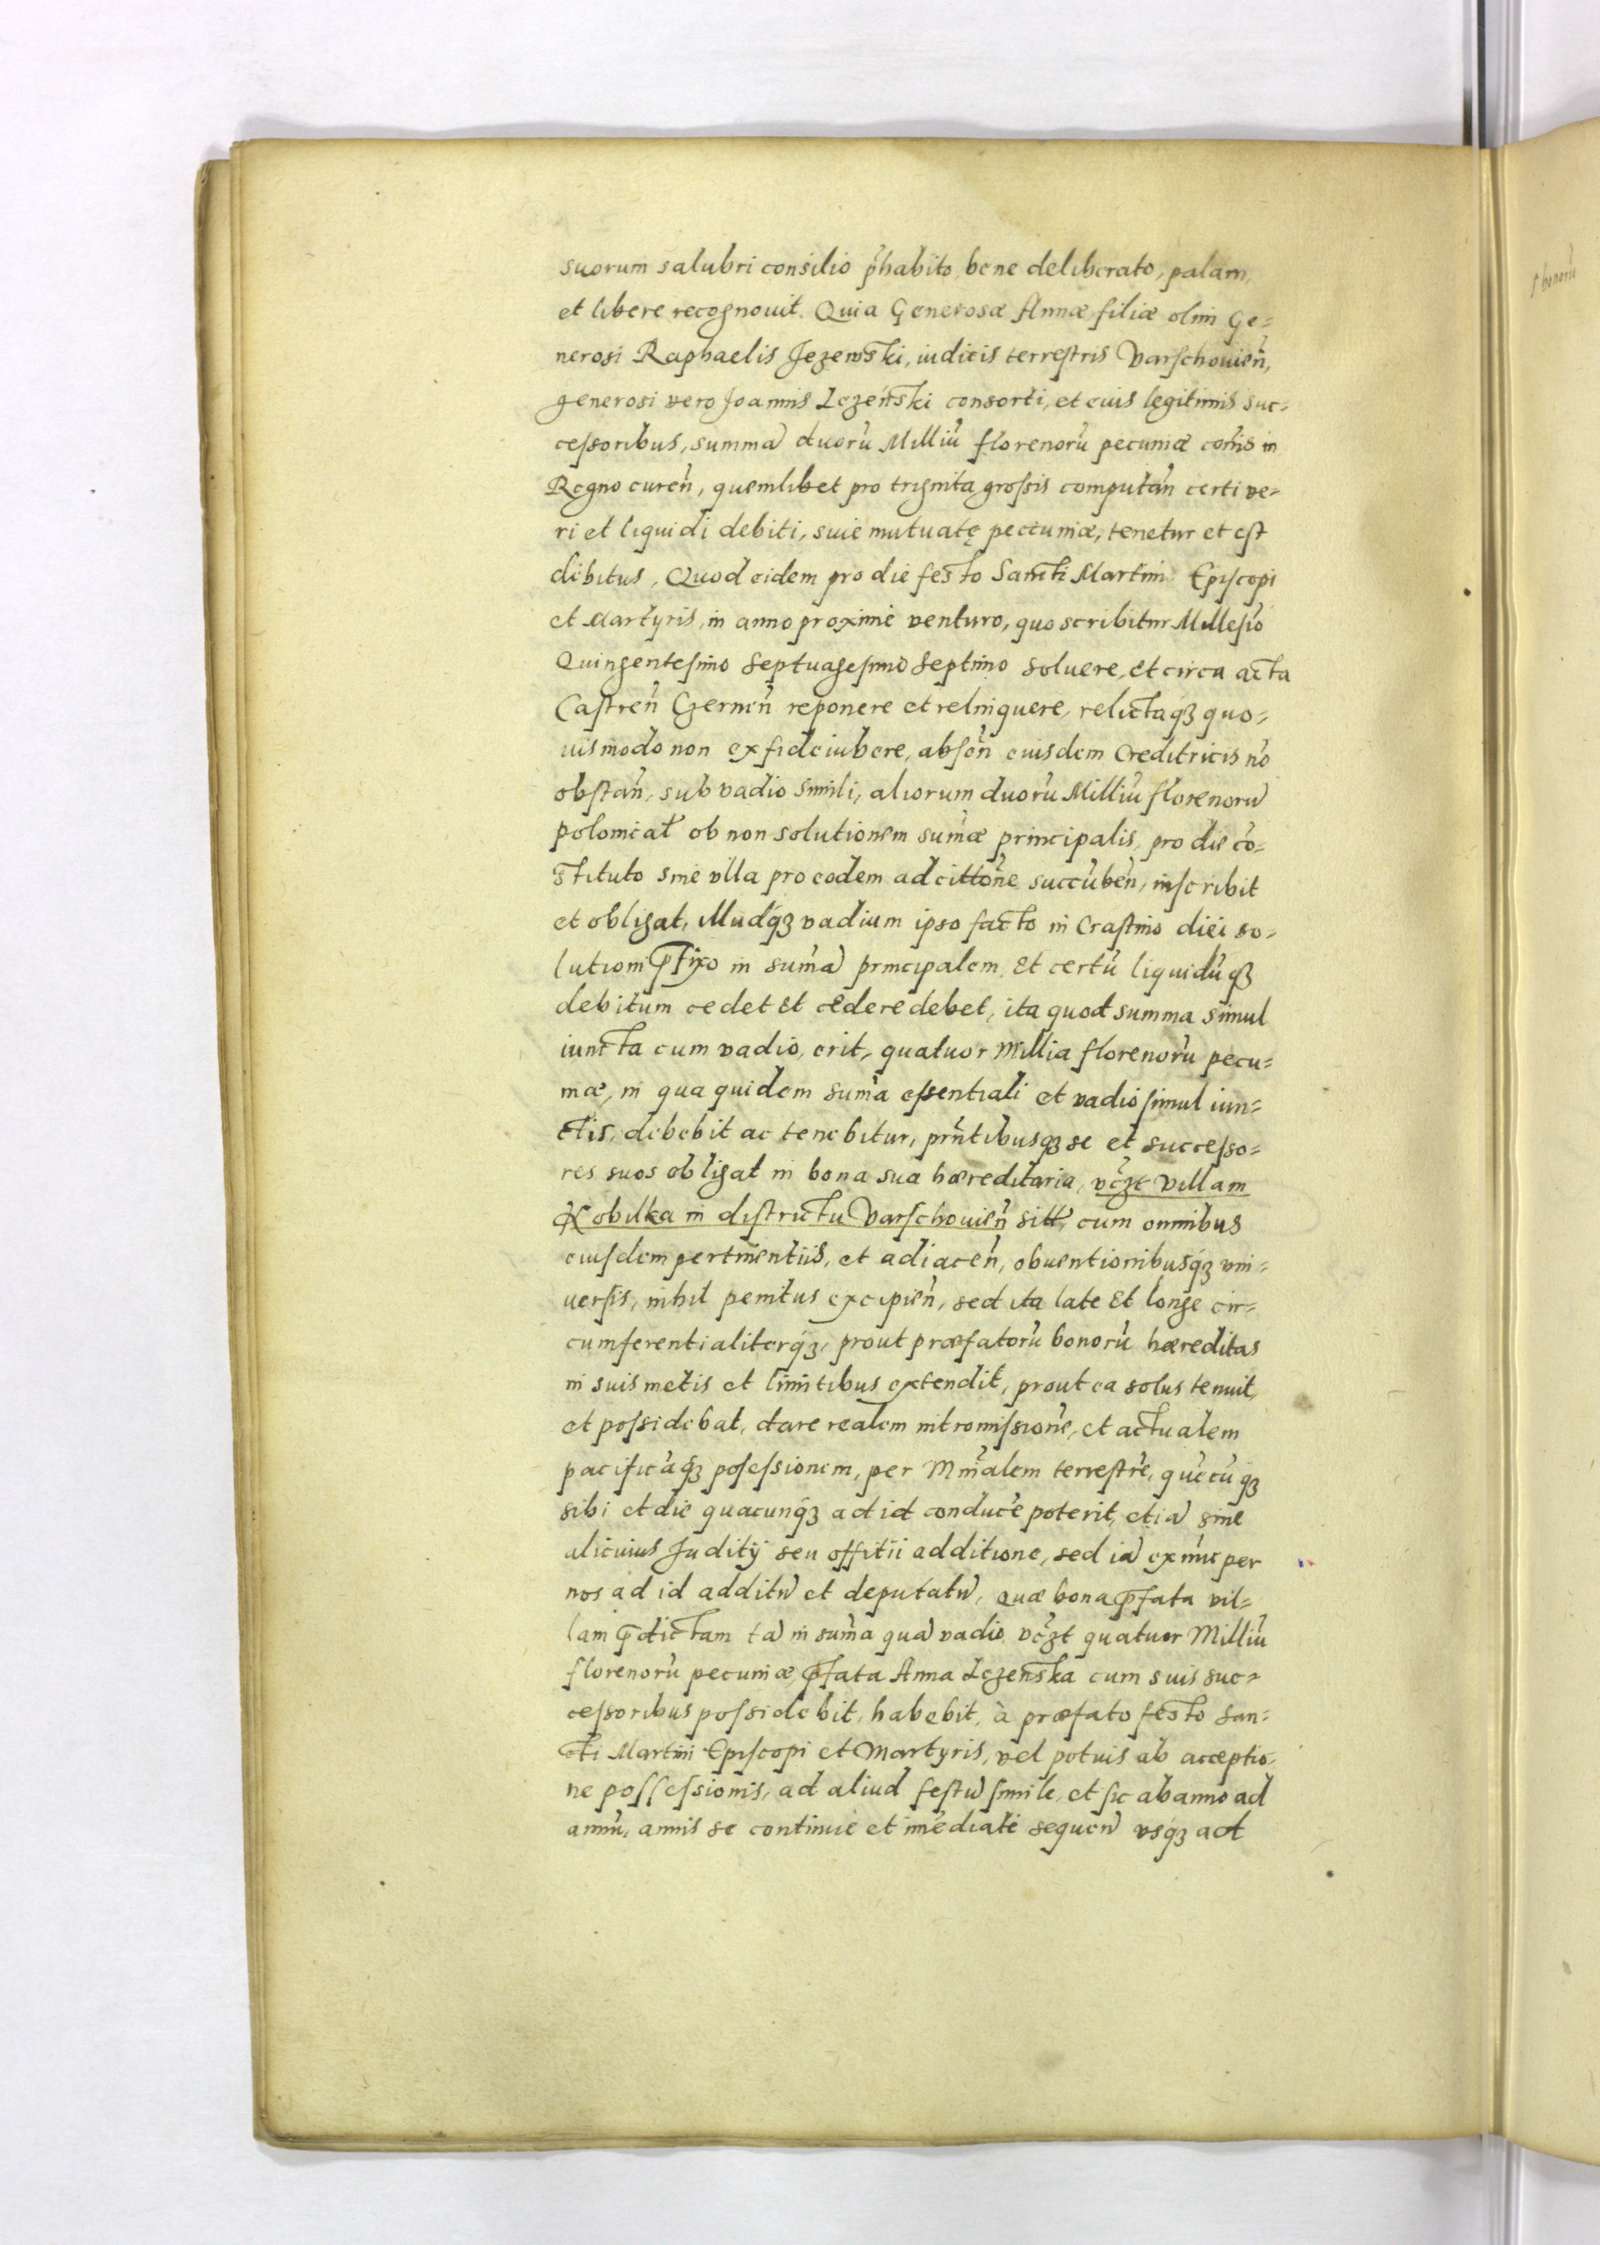 suorum salubri consilio p̃habito, bene deliberato, palam,
et libere recognouit. Quia Generosæ Annæ filiæ olim Ge=
nerosi Raphaelis Jezewski, iudicis terrestris Varschouien̄,
generosi vero Joannis Lezeński consorti, et eius legitimis suc=
cessoribus, summã duorũ Milliũ florenorũ pecuniæ com̃is in
Regno curen̄, quemlibet pro triginta grossis computan̄ certi ve=
ri et liquidi debiti, suie mutuatę peccuniæ, tenetur et est
debitus, Quod eidem pro die festo Sancti Martini Episcopi
et Martyris, in anno proxime venturo, quo scribitur Millesĩo
Quingentesimo Septuagesimo Septimo soluere, et circa acta
Castren̄ Czernen̄ reponere et relinquere, relictaq́ꝫ quo=
uismodo non exfideiubere, absen̄ eiusdem Creditricis nõ
obstan̄, sub vadio simili, aliorum duorũ Milliũ florenorũ
polonicat̃ ob non solutionem sum̃æ principalis, pro die cõ=
stituto sine vlla pro eodem adcittõne succũben̄, inscribit
et obligat, Illudq́ꝫ vadium ipso facto in Crastino diei so=
lutioni p̃fixo in sum̃ã principalem. Et certũ liquidũqꝫ
debitum cedet et cedere debet, ita quod summa simul
iuncta cum vadio, erit, quatuor Millia florenorũ pecu=
niæ, in qua quidem sum̃a essentiali et vadio simul iun=
ctis, debebit ac tenebitur, prñtibusqꝫ se et successo=
res suos obligat in bona sua hæreditaria, vc̃zt villam
Kobilka in districtu Varschouien̄ sitt̃, cum omnibus
eiusdem pertinentiis, et adiacen̄, obuentionibusq́ꝫ vni=
uersis, nihil penitus excipien̄, sed ita late et longe cir=
cumferentialiterq́ꝫ, prout præfatorũ bonorũ hæreditas
in suis metis et limitibus extendit, prout ea solus tenuit,
et possidebat, dare realem intromissionẽ, et actualem
pacificãq́ꝫ posessionem, per Mrãlem terrestrẽ, quẽcũqꝫ
sibi et die quacunq́ꝫ ad id conducẽ poterit, etiã sine
alicuius Juditÿ seu offitii additione, sed iã ex nũc per
nos ad id additũ et deputatũ, quæ bona p̃fata vil=
lam p̃dictam tã in sum̃a quã vadio vc̃zt quatuor Milliũ
florenorũ pecuniæ, p̃fata Anna Lezeńska cum suis suc=
cessoribus possidebit, habebit, à præfato festo San=
cti Martini Episcopi et Martyris, vel potuis ab acceptio=
ne possessionis, ad aliud festũ simile, et sic ab anno ad
annũ, annis se continue et im̃ediate sequen̄ vsq́ꝫ ad